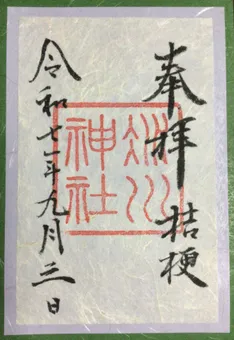 奉拝
桔梗
冰川
神社
令和七年九月三日